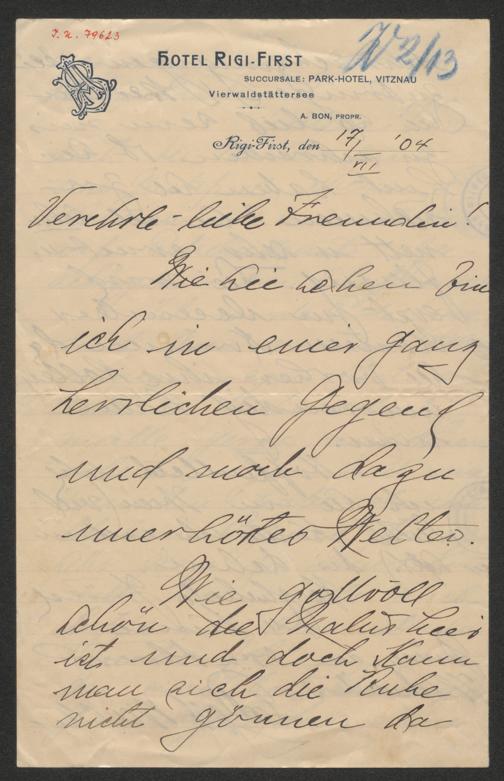 I. N. 79623
HOTEL RIGI-FIRST
W2/13
SUCCURSALE: PARK-HOTEL, VITZNAU
Vierwaldstättersee
A. BON, PROPR.
Rigi-First, den 17/VII '04
Verehrte - liebe Freundin!
Wie Sie sehen bin
ich in einer ganz
herrlichen Gegend
und noch dazu
unerhörtes Wetter.
Wie gottvoll
schön die Natur hier
ist und doch kann
man sich die Ruhe
nicht gönnen da